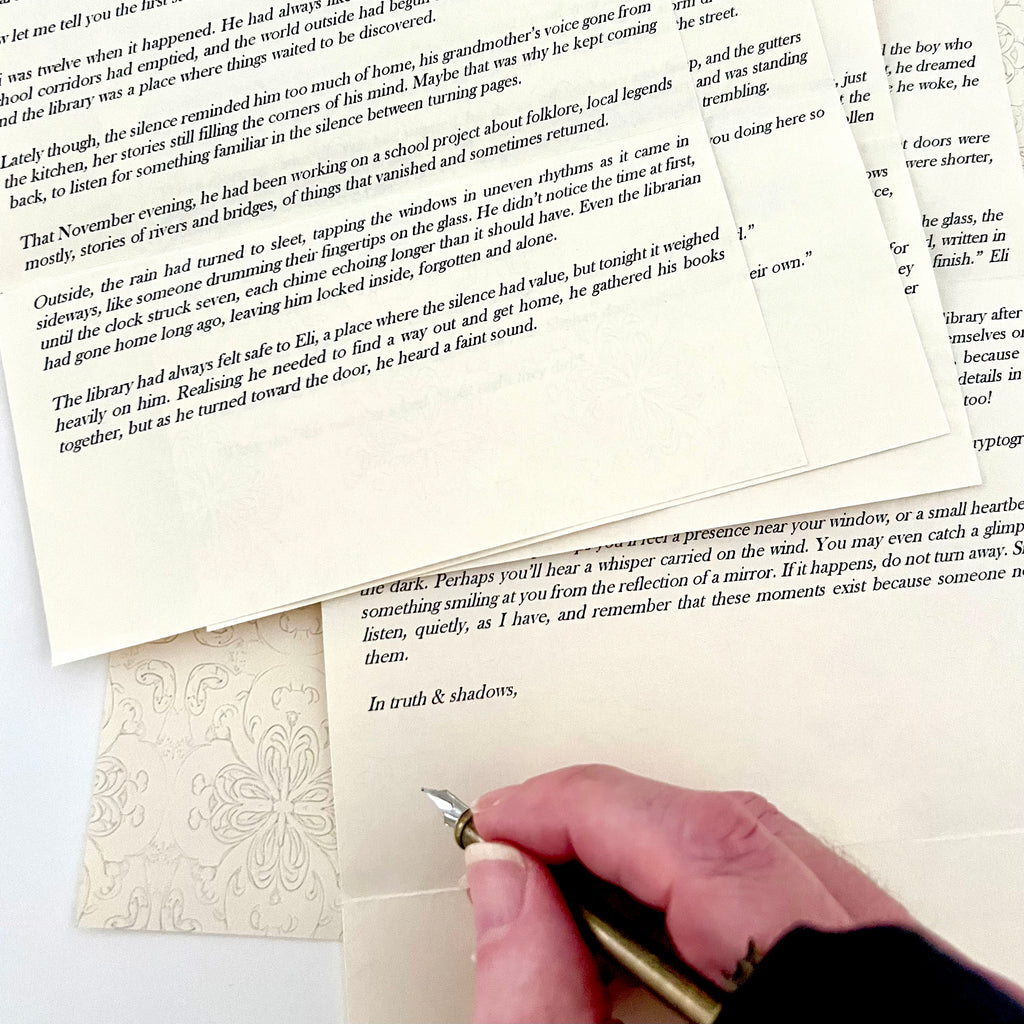 let me tell you the first
was twelve when it happened. He had always
corridors had emptied, and the world outside had
and the library was a place where things waited to be discovered.
Lately though, the silence reminded him too much of home, his grandmother's voice gone from
the kitchen, her stories still filling the corners of his mind. Maybe that was why he kept coming
back, to listen for something familiar in the silence between turning pages.
That November evening, he had been working on a school project about folklore, local legends
mostly, stories of rivers and bridges, of things that vanished and sometimes returned.
Outside, the rain had turned to sleet, tapping the windows in uneven rhythms as it came in
sideways, like someone drumming their fingertips on the glass. He didn't notice the time at first,
until the clock struck seven, each chime echoing longer than it should have. Even the librarian
had gone home long ago, leaving him locked inside, forgotten and alone.
The library had always felt safe to Eli, a place where the silence had value, but tonight it weighed
heavily on him. Realising he needed to find a way out and get home, he gathered his books
together, but as he turned toward the door, he heard a faint sound.
the street.
p, and the gutters
and was standing
trembling.
you doing here so
d."
eir own."
, just
t the
ollen
ows
ce,
for
ey
er
d the boy who
t, he dreamed
he woke, he
t doors were
were shorter,
he glass, the
d, written in
finish." Eli
library after
emselves or
because
details in
too!
ryptogr
you'll feel a presence near your window, or a small heartbe
the dark. Perhaps you'll hear a whisper carried on the wind. You may even catch a glimp
something smiling at you from the reflection of a mirror. If it happens, do not turn away. S
listen, quietly, as I have, and remember that these moments exist because someone ne
them.
In truth & shadows,